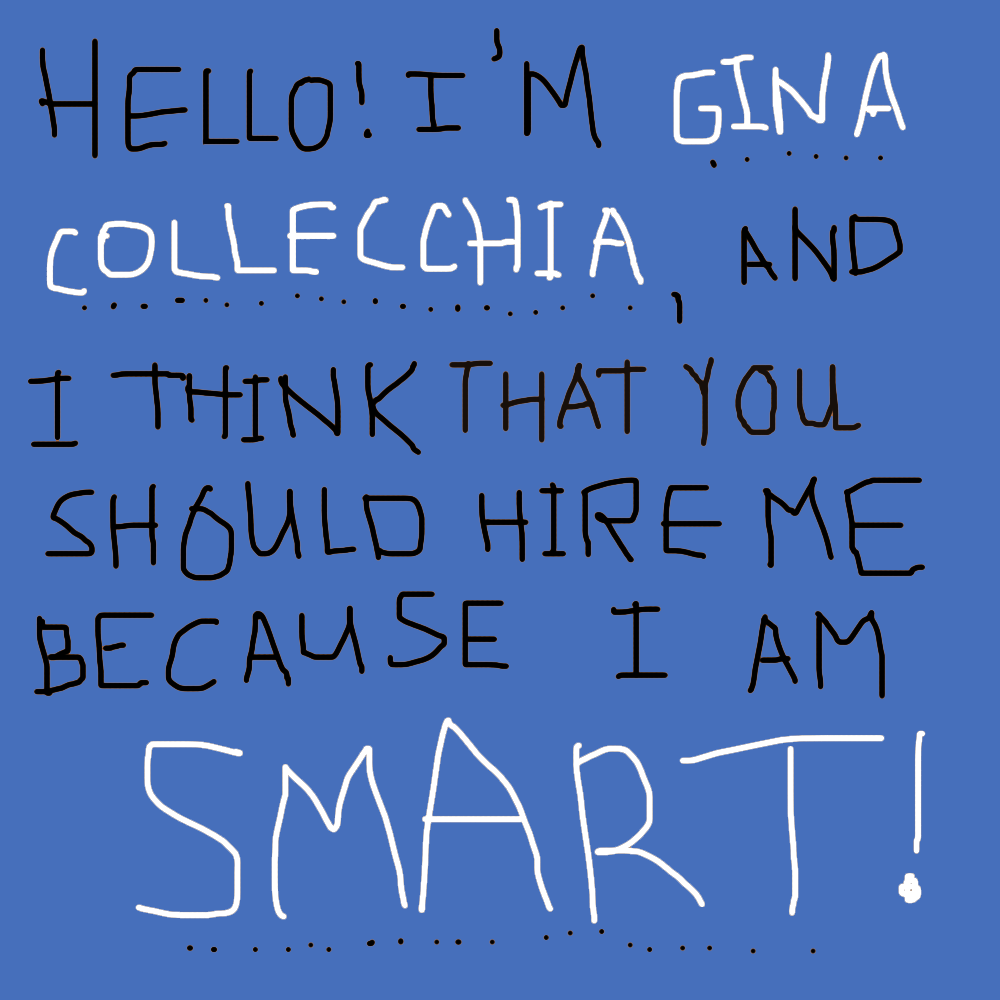 HELLO! I'M GINA
COLLECCHIA, AND
I THINK THAT YOU
SHOULD HIRE ME
BECAUSE I AM
SMART!